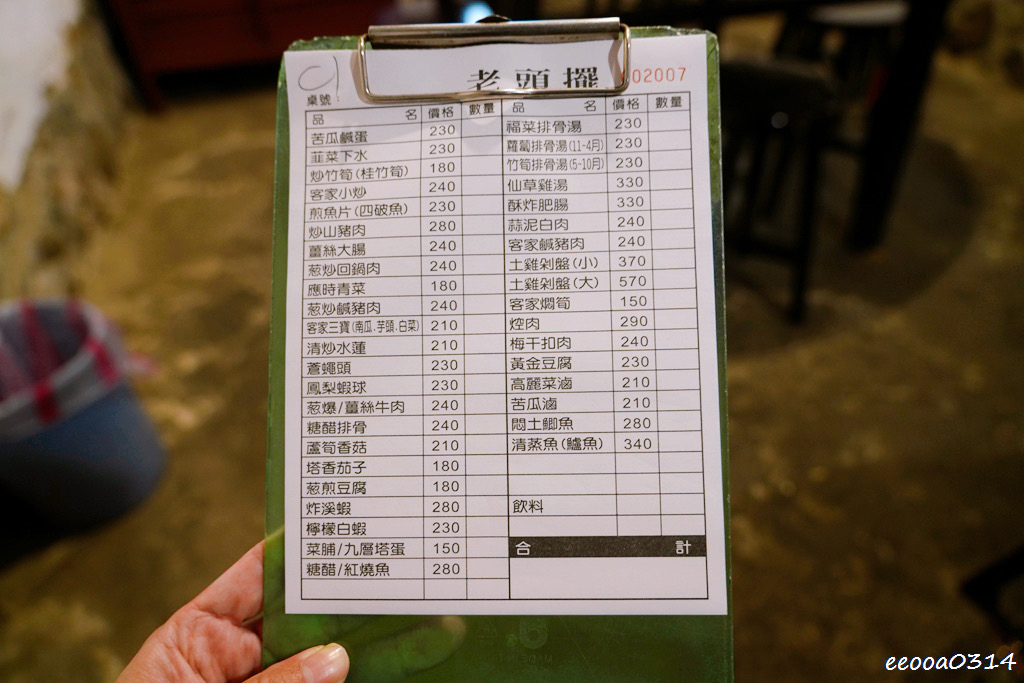 老頭擺 02007
桌號:
品名 價格 數量 品名 價格 數量
苦瓜鹹蛋 230
韮菜下水 230
炒竹筍(桂竹筍) 180
客家小炒 240
煎魚片(四破魚) 230
炒山豬肉 280
薑絲大腸 240
葱炒回鍋肉 240
應時青菜 180
葱炒鹹豬肉 240
客家三寶(南瓜.芋頭.白菜) 210
清炒水蓮 210
蒼蠅頭 230
鳳梨蝦球 230
葱爆/薑絲牛肉 240
糖醋排骨 240
蘆筍香菇 210
塔香茄子 180
葱煎豆腐 180
炸溪蝦 280
檸檬白蝦 230
菜脯/九層塔蛋 150
糖醋/紅燒魚 280
福菜排骨湯 230
蘿蔔排骨湯(11-4月) 230
竹筍排骨湯(5-10月) 230
仙草雞湯 330
酥炸肥腸 330
蒜泥白肉 240
客家鹹豬肉 240
土雞剁盤(小) 370
土雞剁盤(大) 570
客家燜筍 150
焢肉 290
梅干扣肉 240
黃金豆腐 230
高麗菜滷 210
苦瓜滷 210
悶土鯽魚 280
清蒸魚(鱸魚) 340
飲料
合計
eeooa0314